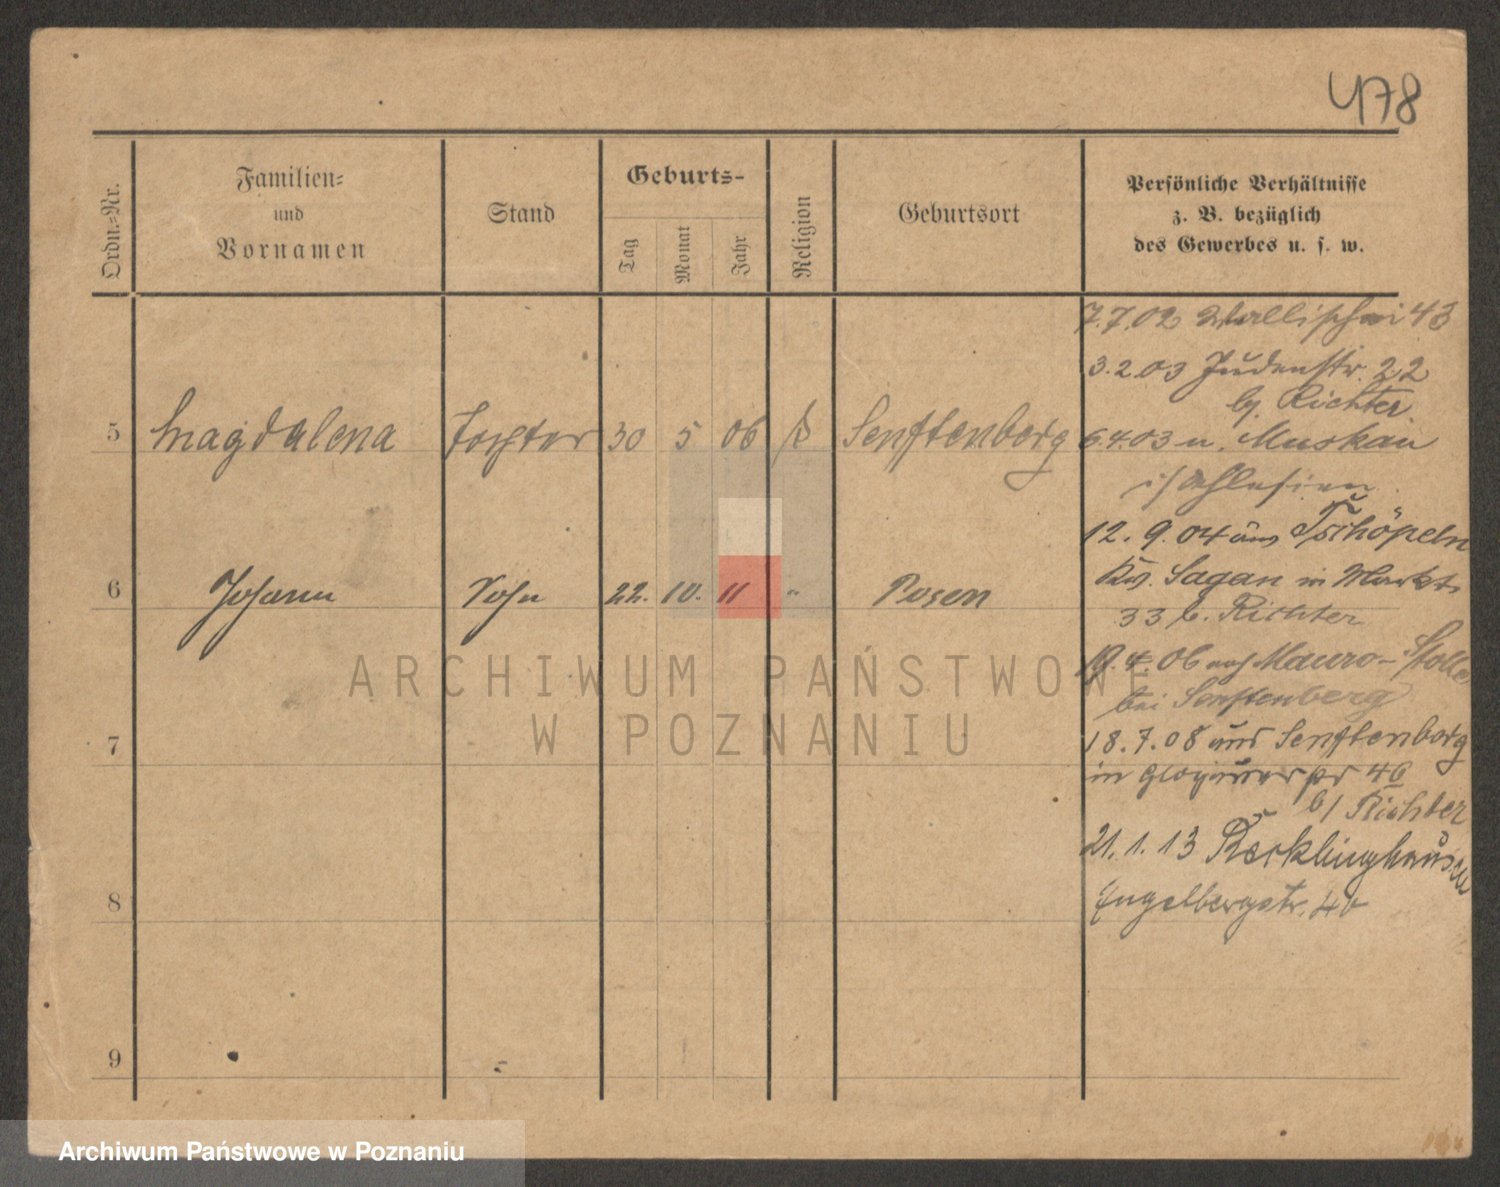 478
Ordn.=Nr.
Familien=
und
Vornamen
Stand
Geburts-
Tag
Monat
Jahr
Religion
Geburtsort
Persönliche Verhältnisse
z. B. bezüglich
des Gewerbes u. s. w.
7.7.02 Wallischei 43
3.2.03 Judenstr. 22
b. Richter
5 Magdalena Tochter 30 5 06 Senftenberg
6.4.03 n. Muskau
i/Schlesien
12. 9. 04 aus Tschöpeln
Kr. Sagan in Markt
33 b. Richter
6 Johann Sohn 22. 10. 11 " Posen
19.4.06 nach Stolle
bei Senftenberg
7
18.7.08 aus Senftenberg
in 46
b/ Richter
21. 1. 13 Recklinghausen
8
Engelbergstr. 46
9
ARCHIWUM PAŃSTWOWE
W POZNANIU
Archiwum Państwowe w Poznaniu